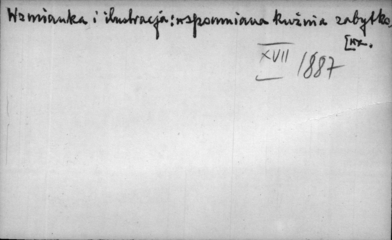 Wzmianka i ilustracja: wspomniana kuźnia zabytko,
[wa.
XVII 1887